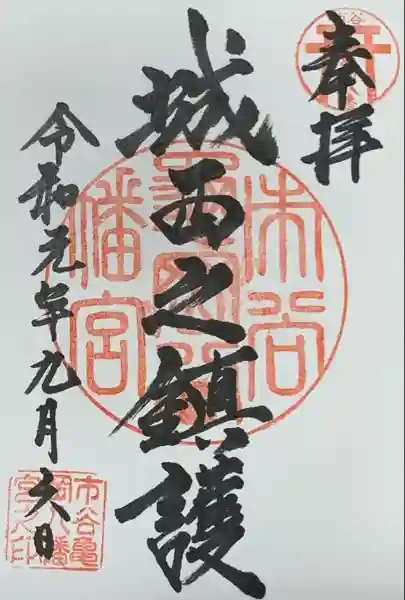 奉拝
城西之鎮護
令和元年九月六日
市谷
市谷亀岡八幡宮
市谷亀岡八幡宮之印